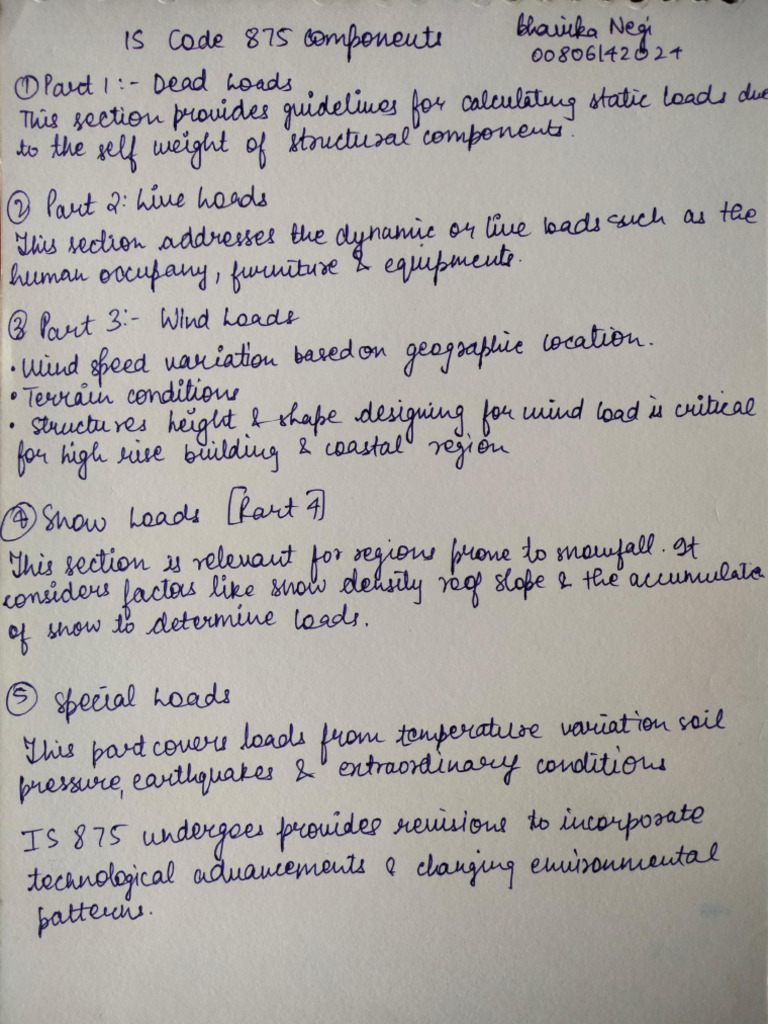 IS Code 875 components
Bhavika Negi
00806142024
① Part 1:- Dead Loads
This section provides guidelines for calculating static loads due
to the self weight of structural components.
② Part 2: Live Loads
This section addresses the dynamic or live loads such as the
human occupany, furniture & equipments.
③ Part 3:- Wind Loads
• Wind speed variation based on geographic location.
• Terrain conditions
• Structures height & shape designing for wind load is critical
for high rise building & coastal region
④ Snow Loads [Part 4]
This section is relevant for regions prone to snowfall. It
considers factors like snow density roof slope & the accumulate
of snow to determine loads.
⑤ Special Loads
This part covers loads from temperature variation soil
pressure, earthquakes & extraordinary conditions
IS 875 undergoes provides revisions to incorporate
technological advancements & changing environmental
patterns.